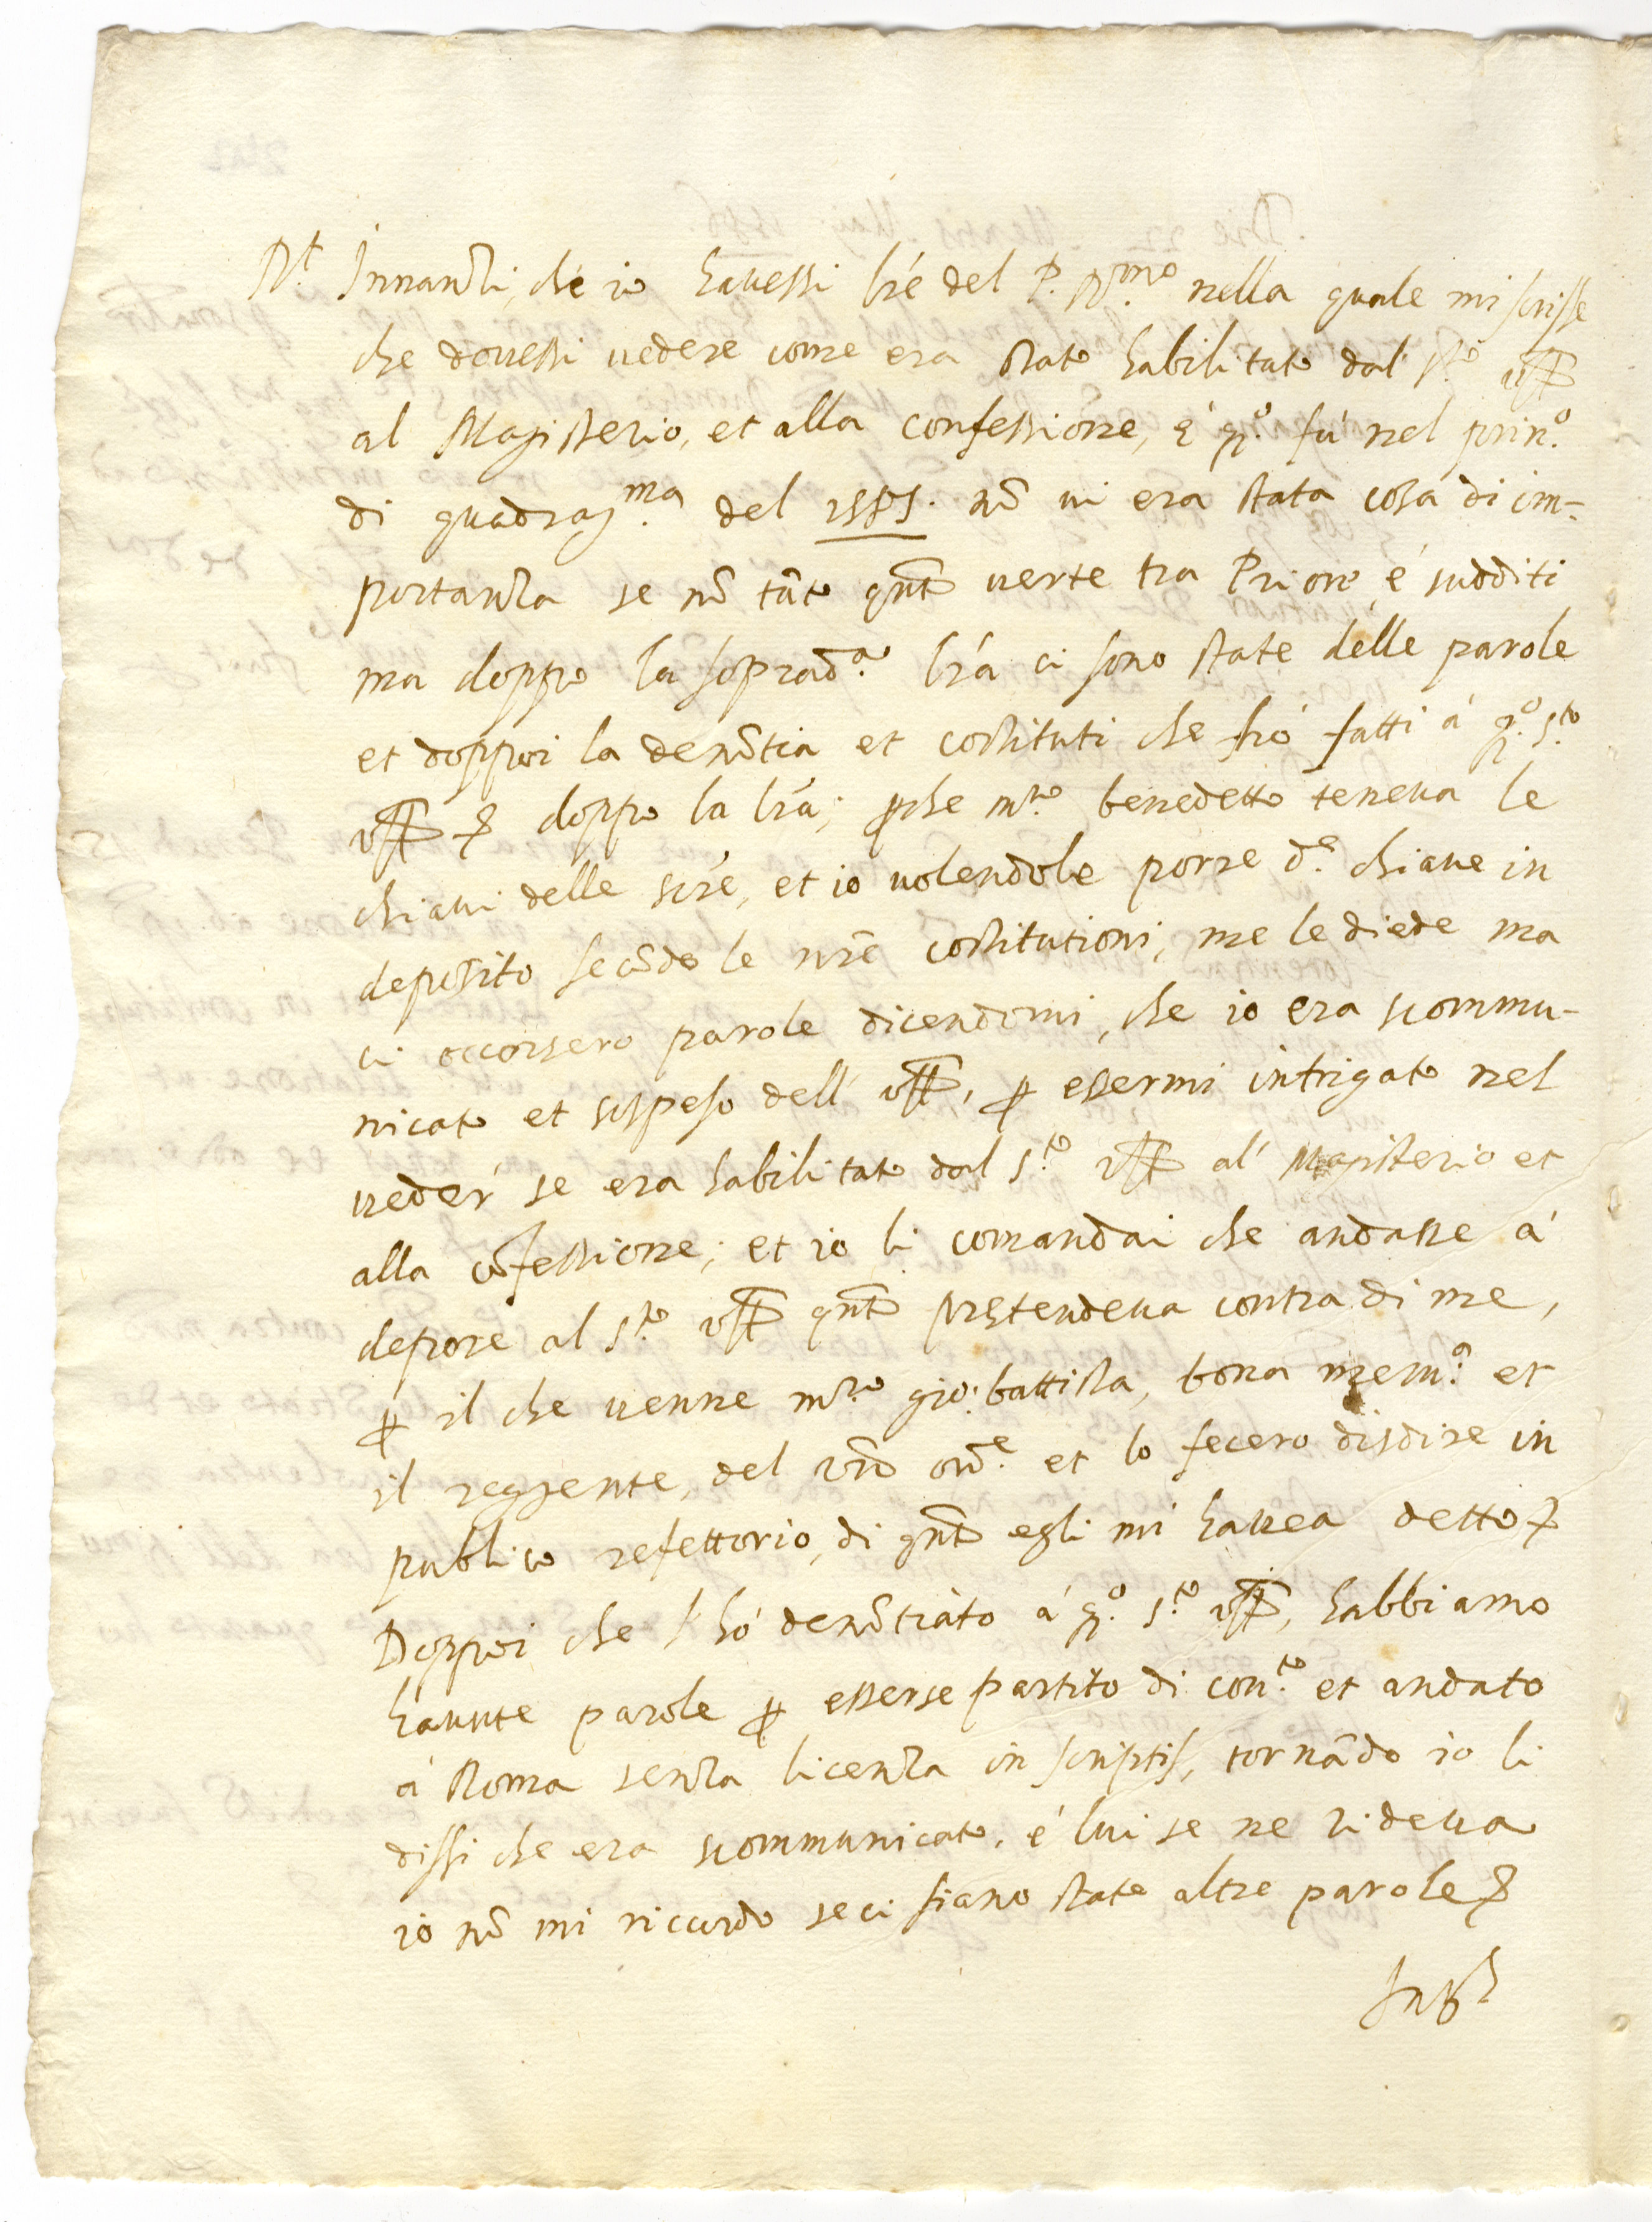 R.t Innanzi, che io havessi lre del P. R.mo nella quale mi scrisse
che dovessi vedere come era stato habilitato dal S.to uff.o
al Magisterio, et alla confessione, è q.o fù nel prin.o
di quadrag.ma del 1585. nō vi era stata cosa di im-
portanza se nō tāto qnto verte tra Priore, é sudditi
ma doppo la soprad.a lrá ci sono state délle parole
et doppoi la denōtia et costituti, che hò fatti á q.o S.to
uff.o doppo la lrá; perche m.ro benedetto teneva le
chiavi delle scre, et io volendole porre d.e chiave in
deposito secōdo le nre costitutioni, me le diede ma
ci occorsero parole dicendomi, che io era scommu-
nicato et sospeso dell' uff.o, per essermi intrigato nel
veder se era habilitato dal S.to uff.o al' Magisterio et
alla cōfessione; et io li comandai che andasse á
depore al S.to uff.o qnto pretendeva contra di me,
per il che venne m.ro gio: battista, bona mem.a et
il reggente, del vro ord.e et lo fecero disdire in
publico refettorio, di qnto egli mi havea detto
Doppoi che l' hó denōtiàto á q.o S.to uff.o, habbiamo
havute parole per esserse partito di con.to et andato
á Roma senza licenza in scriptis, tornādo io li
dissi che era scommunicato, é lui se ne rideva
io nō mi ricordo se ci siano state altre parole